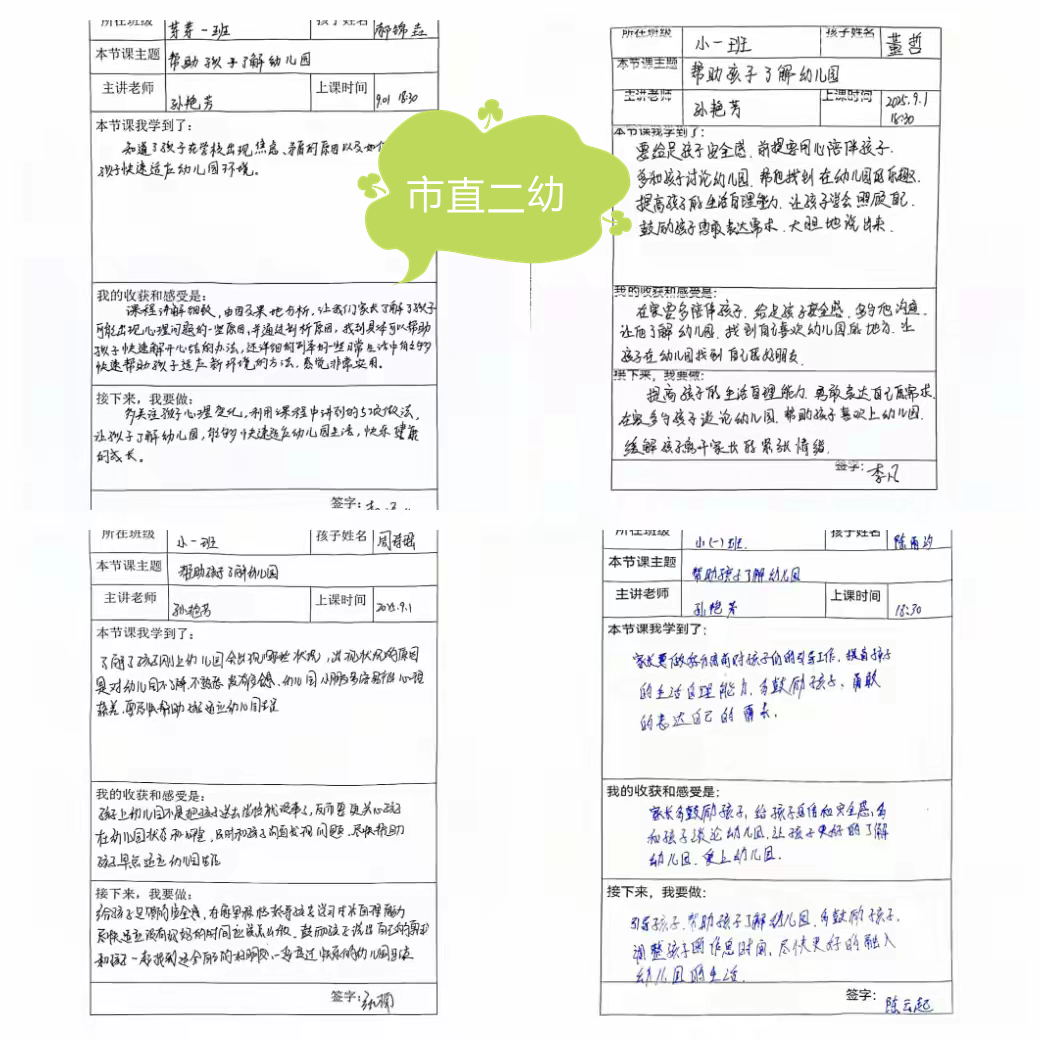 市直二幼
所在班级 芽芽一班 孩子姓名 郁锦焱
本节课主题 帮助孩子了解幼儿园
主讲老师 孙艳芳 上课时间 9.01 18:30
本节课我学到了：
知道了孩子在学校出现焦虑、矛盾的原因以及如何
孩子快速适应幼儿园环境。
我的收获和感受是：
课程讲解细致，由因及果地分析，让我们家长了解了孩子
可能出现心理问题的一些原因，并通过剖析原因，找到具体可以帮助
孩子快速解开心结的办法，还详细的列举好一些日常生活中能够
快速帮助孩子适应新环境的方法，感觉非常实用。
接下来，我要做：
多关注孩子心理变化，利用课程中讲到的5项做法，
让孩子了解幼儿园，能够快速适应幼儿园生活，快乐健康
的成长。
签字：
所在班级 小一班 孩子姓名 董哲
本节课主题 帮助孩子了解幼儿园
主讲老师 孙艳芳 上课时间 2025.9.1
18:30
本节课我学到了：
要给足孩子安全感，前提要用心陪伴孩子.
多和孩子讨论幼儿园，帮他找到在幼儿园的乐趣.
提高孩子的生活自理能力，让孩子学会照顾自己.
鼓励孩子勇敢表达需求，大胆地说出来.
我的收获和感受是：
在家要多陪伴孩子，给足孩子安全感，多与他沟通，
让他了解幼儿园，找到自己喜欢幼儿园的地方，让
孩子在幼儿园找到自己的好朋友.
接下来，我要做：
提高孩子的生活自理能力，勇敢表达自己的需求.
在家多与孩子谈论幼儿园，帮助孩子喜欢上幼儿园.
缓解孩子离开家长的紧张情绪.
签字：李凡
所在班级 小一班 孩子姓名 周
本节课主题 帮助孩子了解幼儿园
主讲老师 孙艳芳 上课时间 2025.9.1
本节课我学到了：
了解了孩子刚上幼儿园会出现哪些状况，出现状况的原因
是对幼儿园不了解，不熟悉
我的收获和感受是：
孩子上幼儿园不是把孩子送去学校就没事了，反而要更关心孩子
在幼儿园状态和心理，及时和孩子沟通发现问题，尽快帮助
孩子早点适应幼儿园生活
接下来，我要做：
给孩子足够的安全感，在家里
签字：张楠
所在班级 小(一)班. 孩子姓名 陈雨汐
本节课主题 帮助孩子了解幼儿园
主讲老师 孙艳芳 上课时间 18:30
本节课我学到了：
家长要做好入园前对孩子们的引导工作，提高孩子
的生活自理能力，多鼓励孩子，勇敢
的表达自己的需求.
我的收获和感受是：
家长多鼓励孩子，给孩子自信和安全感，多
和孩子谈论幼儿园，让孩子更好的了解
幼儿园，爱上幼儿园.
接下来，我要做：
引导孩子，帮助孩子了解幼儿园，多鼓励孩子，
调整孩子的作息时间，尽快更好的融入
幼儿园的生活.
签字：陈云起